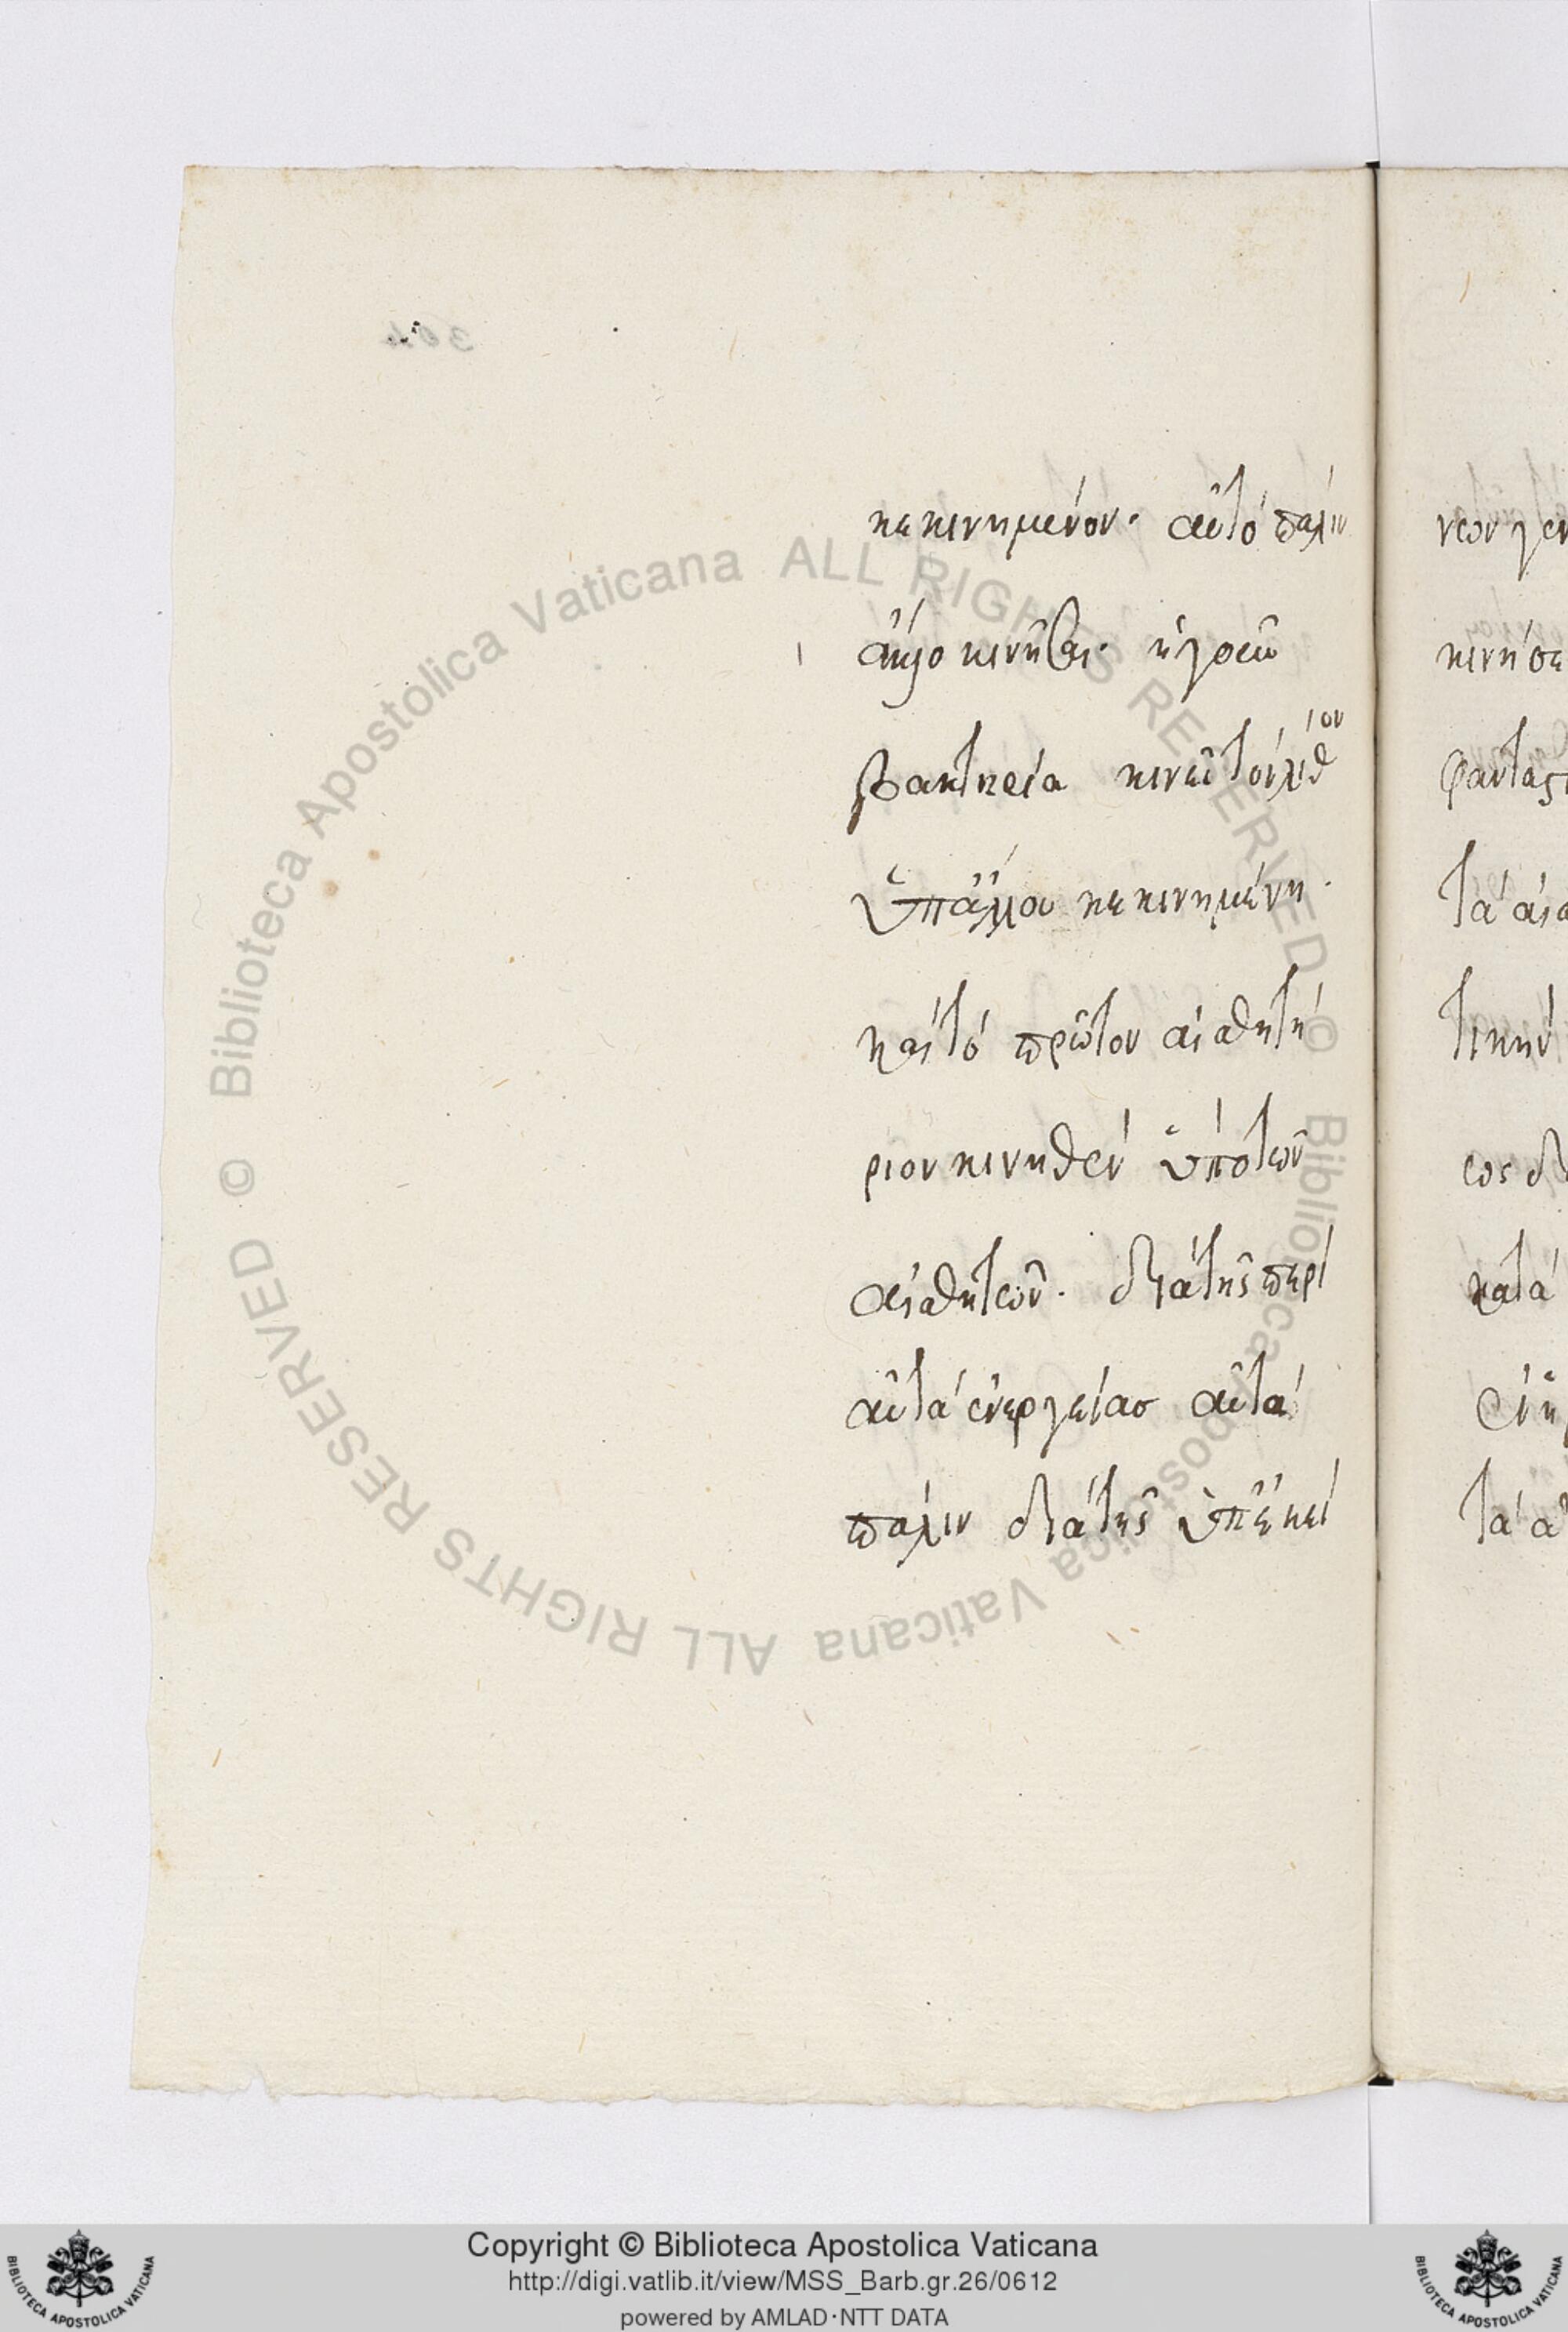 κεκινημένον. αὐτὸ πάλιν
ἄλλο κινῆσαι. ἡ γοῦν
βακτηρία κινεῖ τὸν λίθον
ὑπ' ἄλλου κεκινημένη.
καὶ τὸ πρῶτον αἰσθητή
ριον κινηθὲν ὑπὸ τῶν
αἰσθητῶν. διὰ τῆς περὶ
αὐτὰ ἐνεργείας αὐτὰ
πάλιν διὰ τῆς ὑπεκεί
νεον γεν
κινήσε
φαντασ
τὰ αἰσ
τικὴν
εως δι
κατὰ
τὰ α
© Biblioteca Apostolica Vaticana ALL RIGHTS RESERVED © Biblioteca Apostolica Vaticana ALL RIGHTS RESERVED
Copyright © Biblioteca Apostolica Vaticana
http://digi.vatlib.it/view/MSS_Barb.gr.26/0612
powered by AMLAD·NTT DATA
BIBLIOTECA APOSTOLICA VATICANA
BIBLIOTECA APOSTOLICA VATICANA